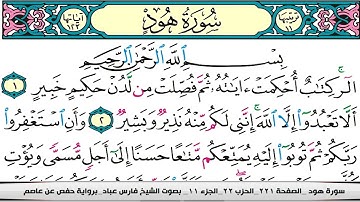 ترتيبها ١١ سُورَةُ هُودٍ آياتها ١٢٣
بِسْمِ ٱللَّهِ ٱلرَّحْمَٰنِ ٱلرَّحِيمِ
الٓر كِتَٰبٌ أُحْكِمَتْ ءَايَٰتُهُۥ ثُمَّ فُصِّلَتْ مِن لَّدُنْ حَكِيمٍ خَبِيرٍ ١
أَلَّا تَعْبُدُوٓا۟ إِلَّا ٱللَّهَ إِنَّنِى لَكُم مِّنْهُ نَذِيرٌ وَبَشِيرٌ ٢ وَأَنِ ٱسْتَغْفِرُوا۟
رَبَّكُمْ ثُمَّ تُوبُوٓا۟ إِلَيْهِ يُمَتِّعْكُم مَّتَٰعًا حَسَنًا إِلَىٰٓ أَجَلٍ مُّسَمًّى وَيُؤْتِ
سورة هود _الصفحة ٢٢١_ الحزب ٢٢_ الجزء ١١_ بصوت الشيخ فارس عباد_ برواية حفص عن عاصم